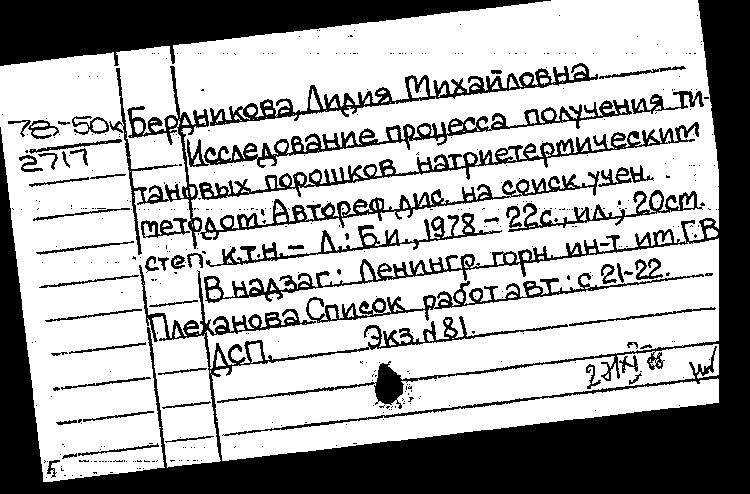 78-50к
2717
Бердникова, Лидия Михайловна
Исследование процесса получения ти-
тановых порошков натриетермическим
методом: Автореф. дис. на соиск. учен.
степ. к.т.н. – Л.: Б.и., 1978. – 22с., ил.; 20см.
В надзаг.: Ленингр. горн. ин-т им. Г.В
Плеханова. Список работ авт.: с. 21-22.
ДСП. Экз. № 81.